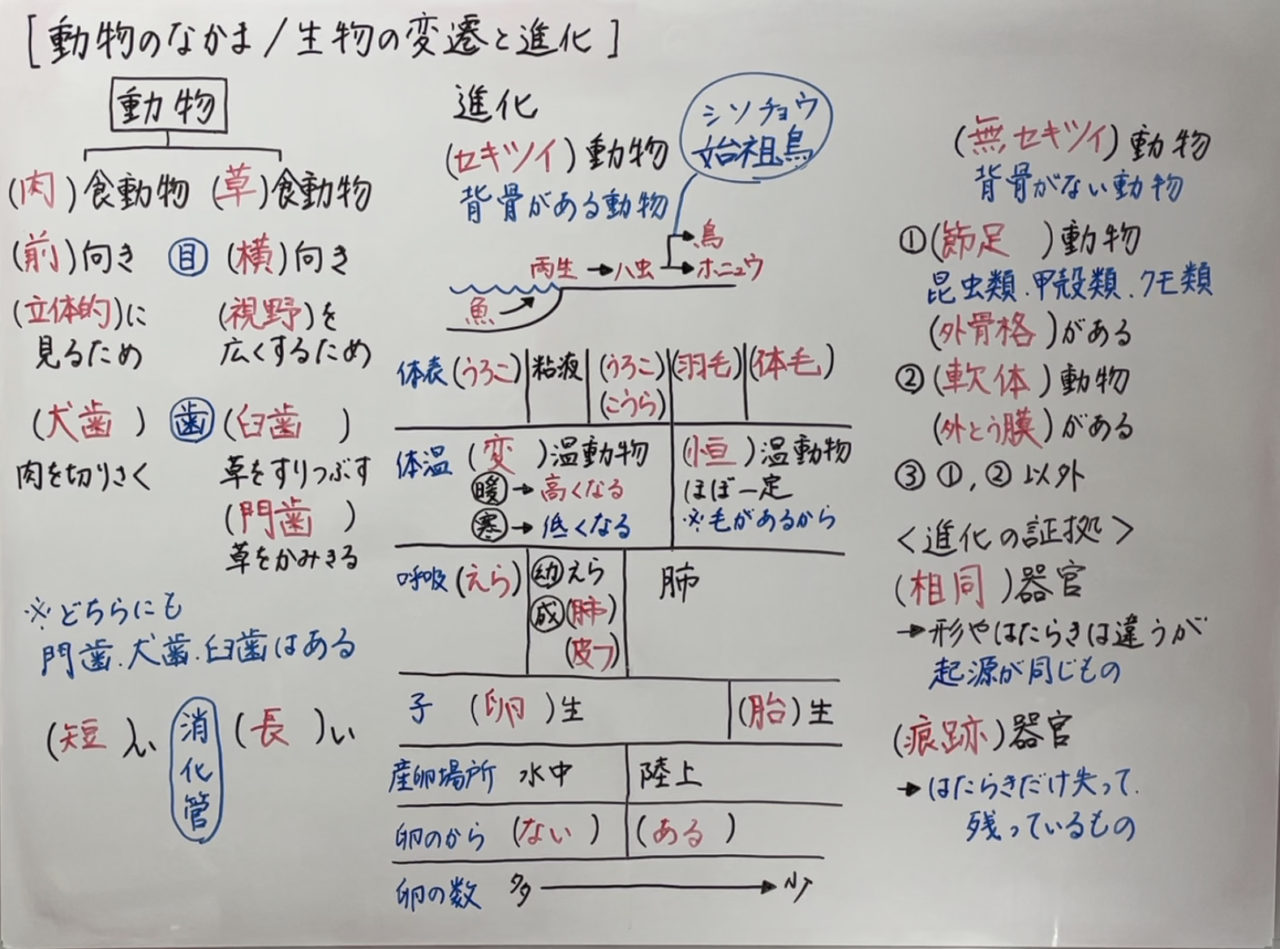 [動物のなかま/生物の変遷と進化]
動物
(肉)食動物 (草)食動物
(前)向き 目 (横)向き
(立体的)に (視野)を
見るため 広くするため
(犬歯) 歯 (臼歯)
肉を切りさく 草をすりつぶす
(門歯)
草をかみきる
※どちらにも
門歯.犬歯.臼歯はある
(短)い 消化管 (長)い
進化
(セキツイ)動物
背骨がある動物
シソチョウ
始祖鳥
鳥
両生→ハ虫→ホニュウ
魚
体表 (うろこ) 粘液 (うろこ) (羽毛) (体毛)
(こうら)
体温 (変)温動物 (恒)温動物
暖→高くなる ほぼ一定
寒→低くなる ※毛があるから
呼吸 (えら) 幼えら 肺
成(肺)
(皮フ)
子 (卵)生 (胎)生
産卵場所 水中 陸上
卵のから (ない) (ある)
卵の数 多→少
(無セキツイ)動物
背骨がない動物
①(節足)動物
昆虫類.甲殻類.クモ類
(外骨格)がある
②(軟体)動物
(外とう膜)がある
③①,②以外
<進化の証拠>
(相同)器官
→形やはたらきは違うが
起源が同じもの
(痕跡)器官
→はたらきだけ失って.
残っているもの